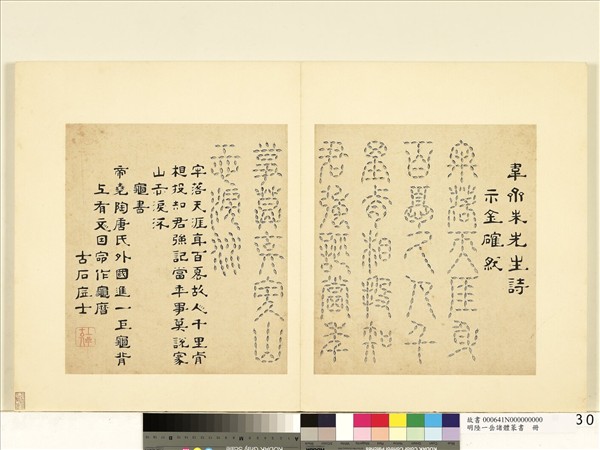 先生詩
示金確然
牢落天涯身
百憂故人千
里肯相投知
君強記當年
事莫說家山
淚流
牢落天涯身百憂故人千里肯
相投知君強記當年事莫說家
山淚流
龜書
帝堯陶唐氏外國進一巨龜背
上有文因命作龜曆
古石居士
故書 000641N000000000
明陸一岳諸體篆書 冊
30